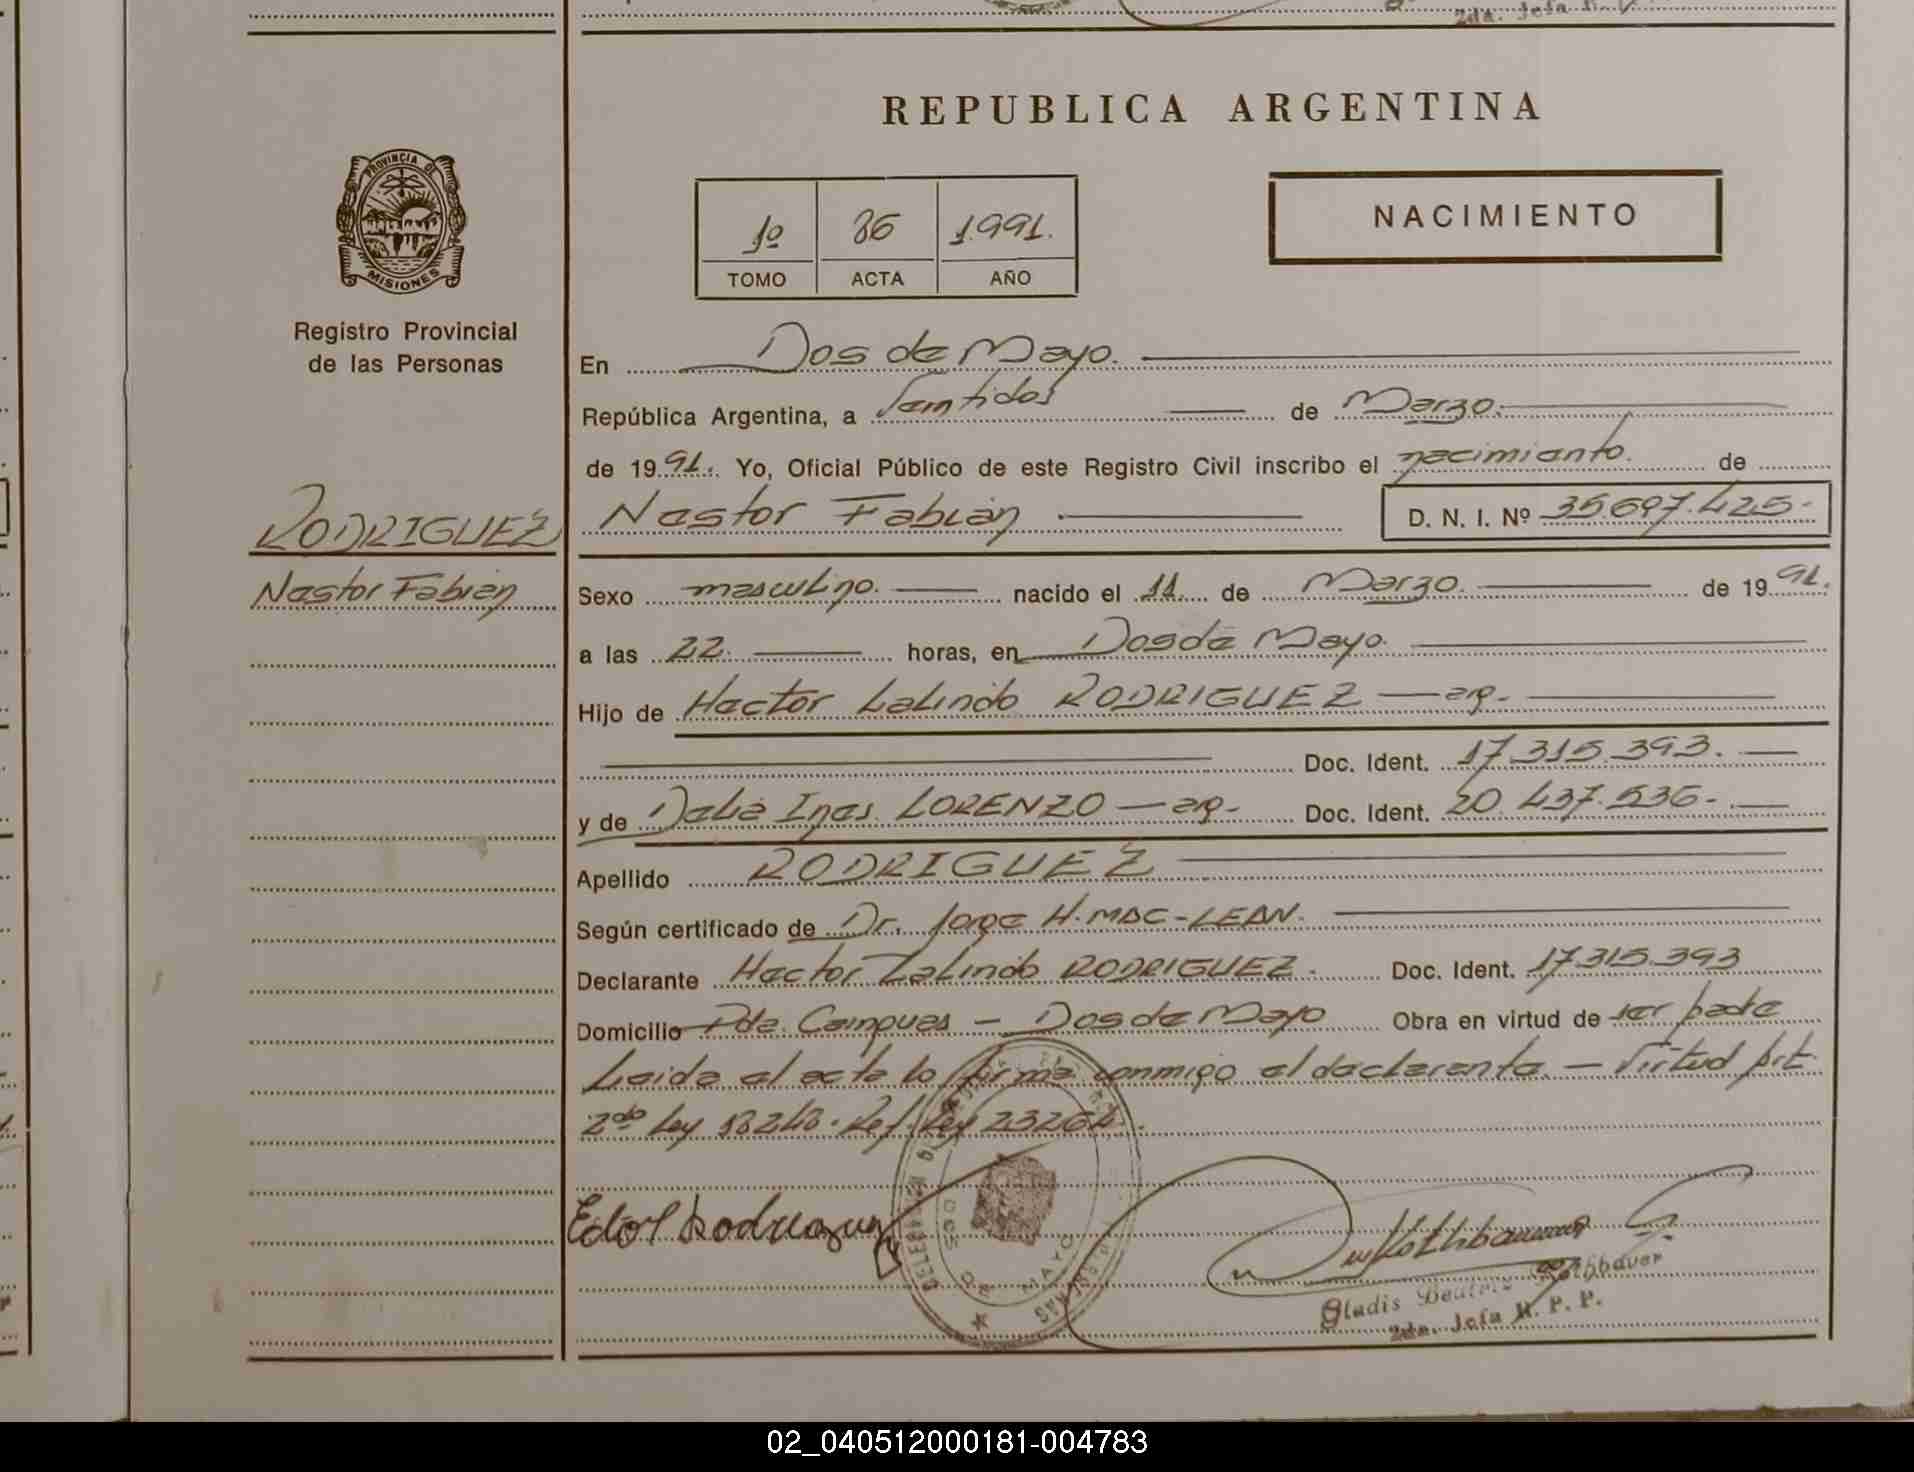 2da. Jefa R.
REPUBLICA ARGENTINA
PROVINCIA DE
MISIONES
Registro Provincial
de las Personas
1º 86 1.991.
TOMO ACTA AÑO
NACIMIENTO
En Dos de Mayo.
República Argentina, a Veintidos de Marzo.
de 1991. Yo, Oficial Público de este Registro Civil inscribo el nacimiento. de
RODRIGUEZ
Nestor Fabián D. N. I. Nº 35.697.425.-
Nestor Fabián
Sexo masculino. nacido el 11. de Marzo. de 1991.
a las 22. horas, en Dos de Mayo.
Hijo de Hector Lalindo RODRIGUEZ — arg.
Doc. Ident. 17.315.393.
y de Delia Ines LORENZO — arg. Doc. Ident. 20.437.536.-
Apellido RODRIGUEZ
Según certificado de Dr. Jorge H. MAC-LEAN.
Declarante Hector Lalindo RODRIGUEZ. Doc. Ident. 17.315.393
Domicilio Pda. Cainguas — Dos de Mayo Obra en virtud de ser padre
Leida el acta lo firma conmigo el declarante. — Virtud Art.
2do Ley 18248. Ref. Ley 23264.
DOS DE MAYO
Gladis Beatriz Rothbauer
2da. Jefa R. P. P.
02_040512000181-004783